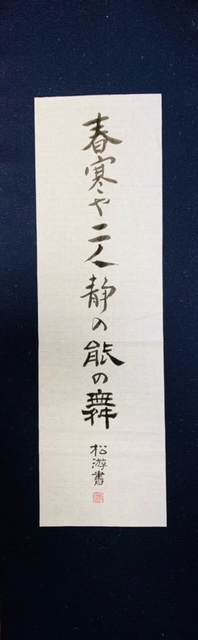 春寒や二人静の能の舞
松游書